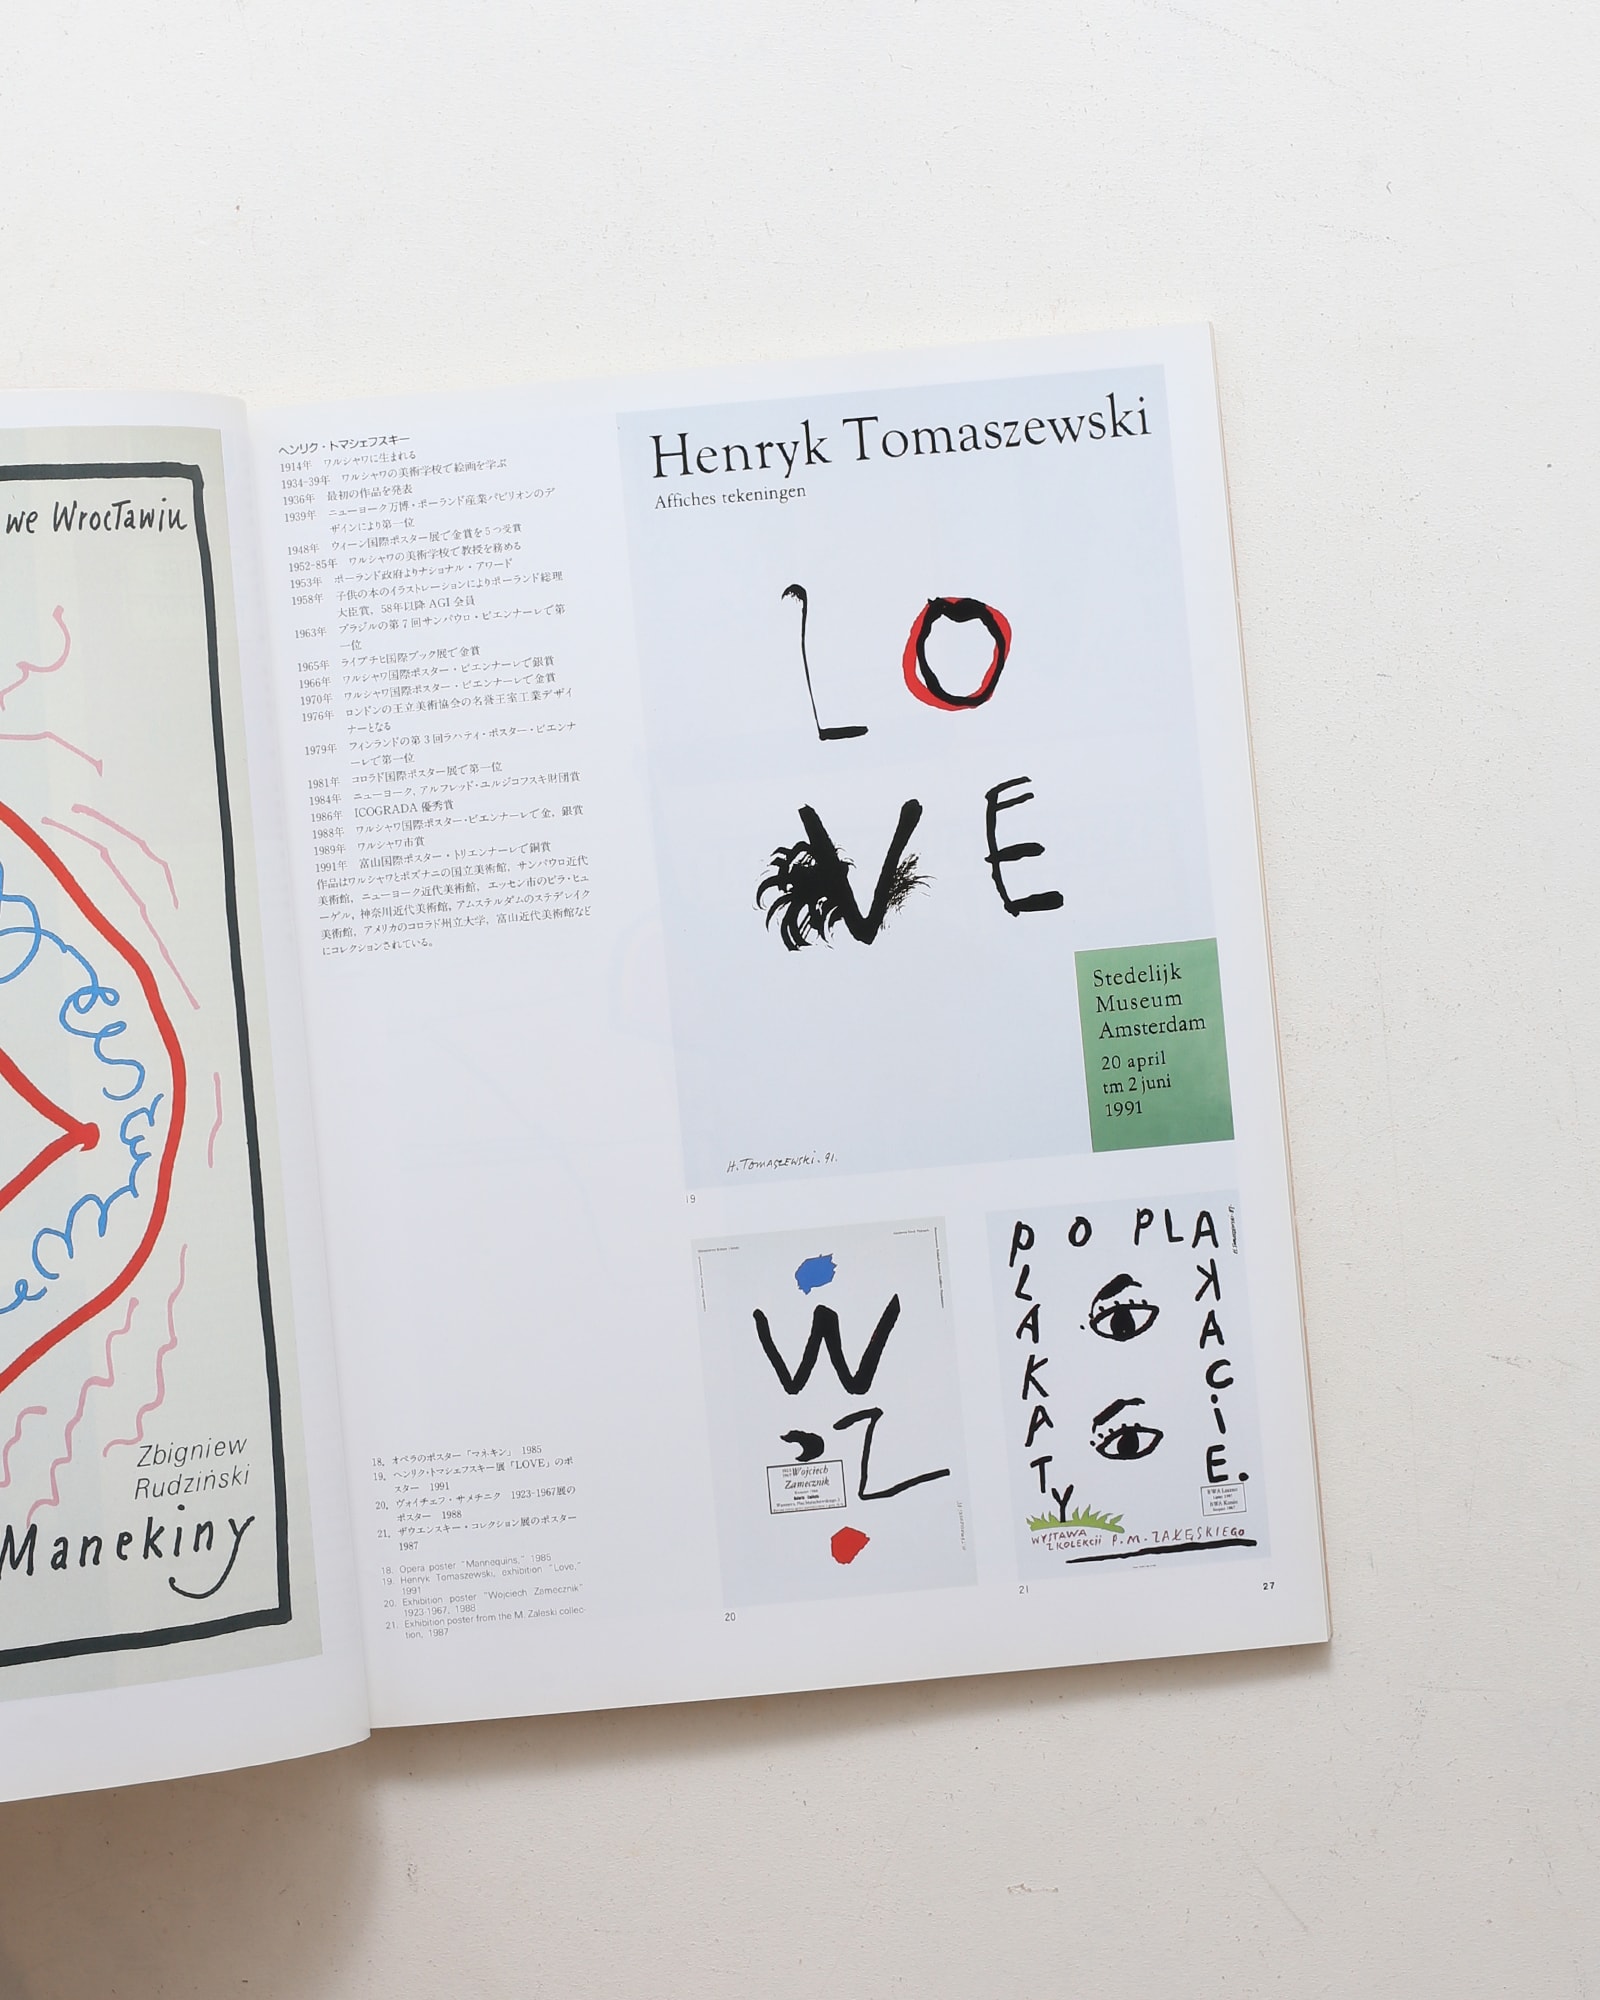 we Wrocławiu
Zbigniew
Rudziński
Manekiny
ヘンリク・トマシェフスキー
1914年 ワルシャワに生まれる
1934-39年 ワルシャワの美術学校で絵画を学ぶ
1936年 最初の作品を発表
1939年 ニューヨーク万博・ポーランド産業パビリオンのデ
ザインにより第一位
1948年 ウィーン国際ポスター展で金賞を5つ受賞
1952-85年 ワルシャワの美術学校で教授を務める
1953年 ポーランド政府よりナショナル・アワード
1958年 子供の本のイラストレーションによりポーランド総理
大臣賞，58年以降 AGI 会員
1963年 ブラジルの第7回サンパウロ・ビエンナーレで第
一位
1965年 ライプチヒ国際ブック展で金賞
1966年 ワルシャワ国際ポスター・ビエンナーレで銀賞
1970年 ワルシャワ国際ポスター・ビエンナーレで金賞
1976年 ロンドンの王立美術協会の名誉王室工業デザイ
ナーとなる
1979年 フィンランドの第3回ラハティ・ポスター・ビエンナ
ーレで第一位
1981年 コロラド国際ポスター展で第一位
1984年 ニューヨーク，アルフレッド・ユルジコフスキ財団賞
1986年 ICOGRADA 優秀賞
1988年 ワルシャワ国際ポスター・ビエンナーレで金，銀賞
1989年 ワルシャワ市賞
1991年 富山国際ポスター・トリエンナーレで銅賞
作品はワルシャワとポズナニの国立美術館，サンパウロ近代
美術館，ニューヨーク近代美術館，エッセン市のビラ・ヒュ
ーゲル，神奈川近代美術館，アムステルダムのステデレイク
美術館，アメリカのコロラド州立大学，富山近代美術館など
にコレクションされている。
18. オペラのポスター「マネキン」 1985
19. ヘンリク・トマシェフスキー展「LOVE」のポ
スター 1991
20. ヴォイチェフ・サメチニク 1923-1967展の
ポスター 1988
21. ザウエンスキー・コレクション展のポスター
1987
18. Opera poster "Mannequins," 1985
19. Henryk Tomaszewski, exhibition "Love,"
1991
20. Exhibition poster "Wojciech Zamecznik"
1923-1967, 1988
21. Exhibition poster from the M. Zaleski collec-
tion, 1987
Henryk Tomaszewski
Affiches tekeningen
LO
VE
Stedelijk
Museum
Amsterdam
20 april
tm 2 juni
1991
H. TOMASZEWSKI. 91.
19
W
Z
Wojciech
Zamecznik
20
PLAKATY
PO PLAKACIE.
WYSTAWA
Z KOLEKCJI P. M. ZAŁĘSKIEGO
21
27